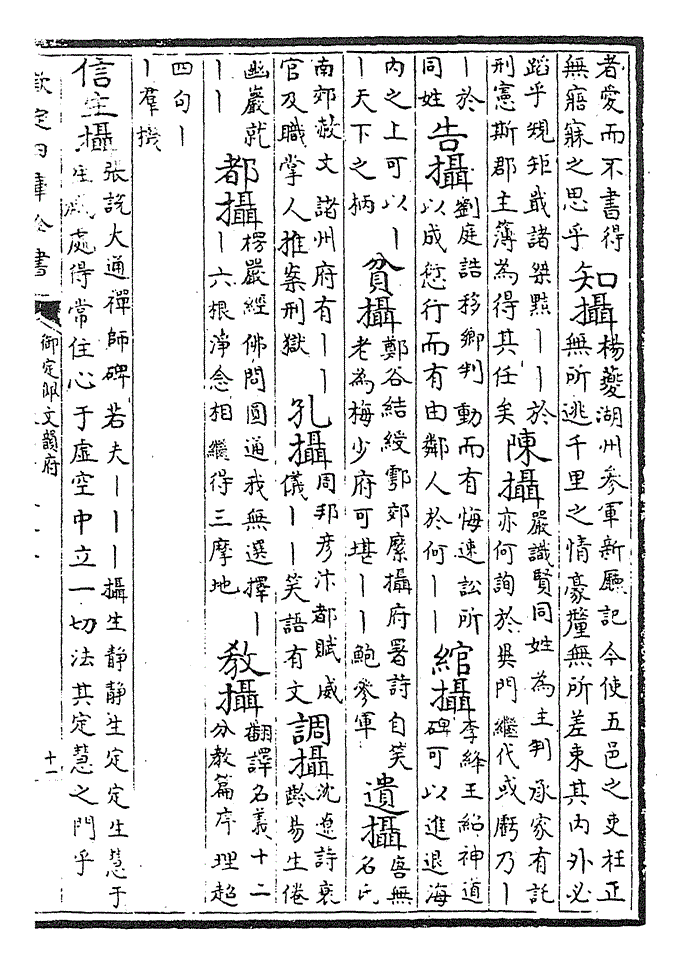 者愛而不書得
無寤寐之思乎
知攝
楊夔湖州參軍新廳記今使五邑之吏枉正
無所逃千里之情豪釐無所差束其內外必
蹈乎規矩戢諸桀黠丨丨於
刑憲斯郡主簿為得其任矣
陳攝
嚴識賢同姓為主判承家有託
亦何詢於吳門繼代或虧乃丨
丨於
同姓
告攝
劉庭誥移鄉判動而有悔速訟所
以成愆行而有由鄰人於何丨丨
綰攝
李絳王紹神道
碑可以進退海
內之上可以丨
丨天下之柄
貧攝
鄭谷結綬鄠郊縻攝府署詩自笑
老為梅少府可堪丨丨鮑參軍
遺攝
唐無
名氏
南郊赦文諸州府有丨丨
官及職掌人推案刑獄
孔攝
周邦彥汴都賦威
儀丨丨笑語有文
調攝
沈遼詩衰
齡易生倦
幽巖就
丨丨
都攝
楞嚴經佛問圓通我無選擇丨
丨六根淨念相繼得三摩地
教攝
翻譯名義十二
分教篇序理超
四句丨
丨羣機
信生攝
張說大通禪師碑若夫丨丨丨攝生靜靜生定定生慧于
生滅處得常住心于虛空中立一切法其定慧之門乎
欽定四庫全書
御定佩文韻府
十一